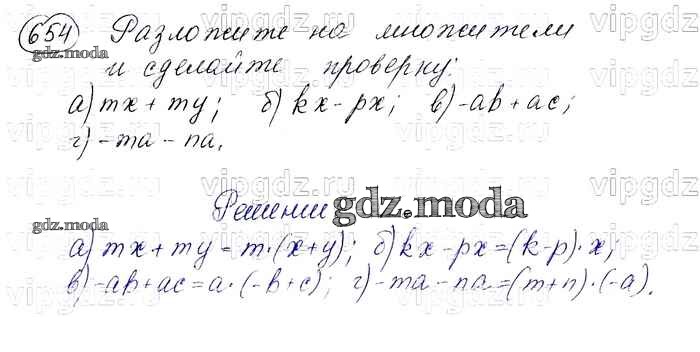 654 Разложите на множители
и сделайте проверку:
а) mx + my; б) kx - px; в) -ab + ac;
г) -ma - na.
Решени
а) mx + my = m·(x+y); б) kx - px = (k-p)·x;
в) -ab + ac = a·(-b+c); г) -ma - na = (m+n)·(-a).
gdz.moda
gdz.moda
gdz.moda
vipgdz.ru